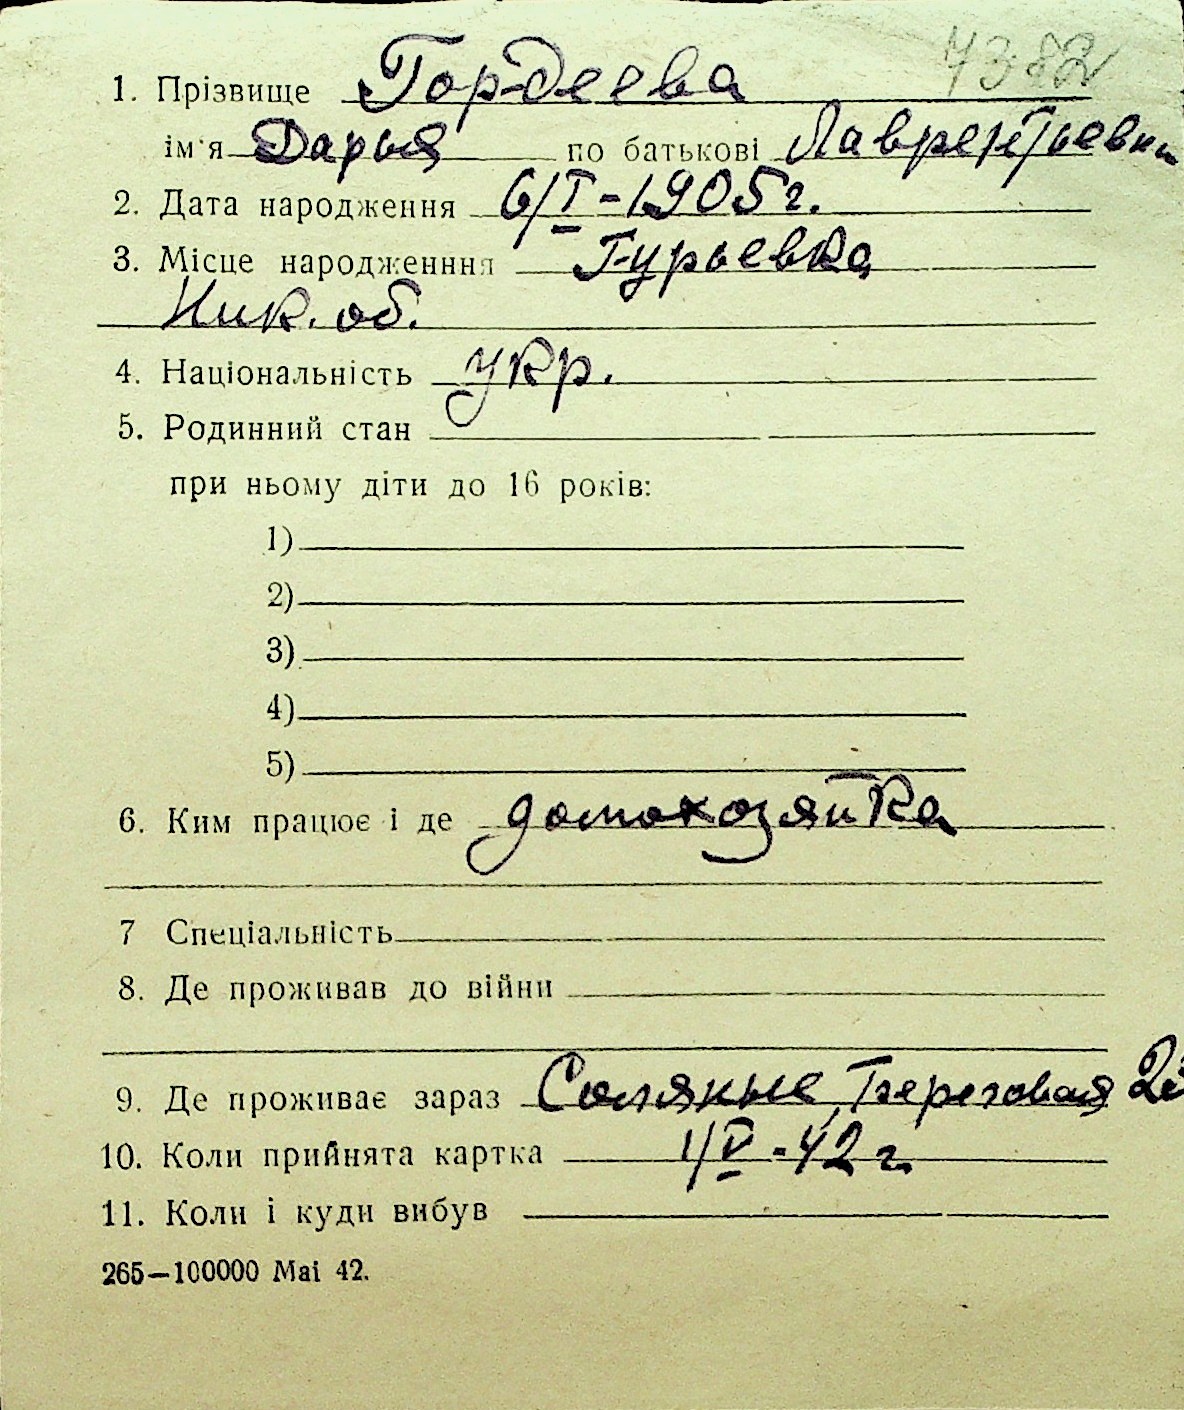 7382
1. Прізвище Гордеева
ім'я Дарья по батькові Лаврентьевна
2. Дата народження 6/I-1905 г.
3. Місце народженння Гурьевка
Ник. об.
4. Національність укр.
5. Родинний стан
при ньому діти до 16 років:
1)
2)
3)
4)
5)
6. Ким працює і де домохозяйка
7 Спеціальність
8. Де проживав до війни
9. Де проживає зараз Соляные, Береговая
10. Коли прийнята картка 1/V-42 г.
11. Коли і куди вибув
265—100000 Mai 42.